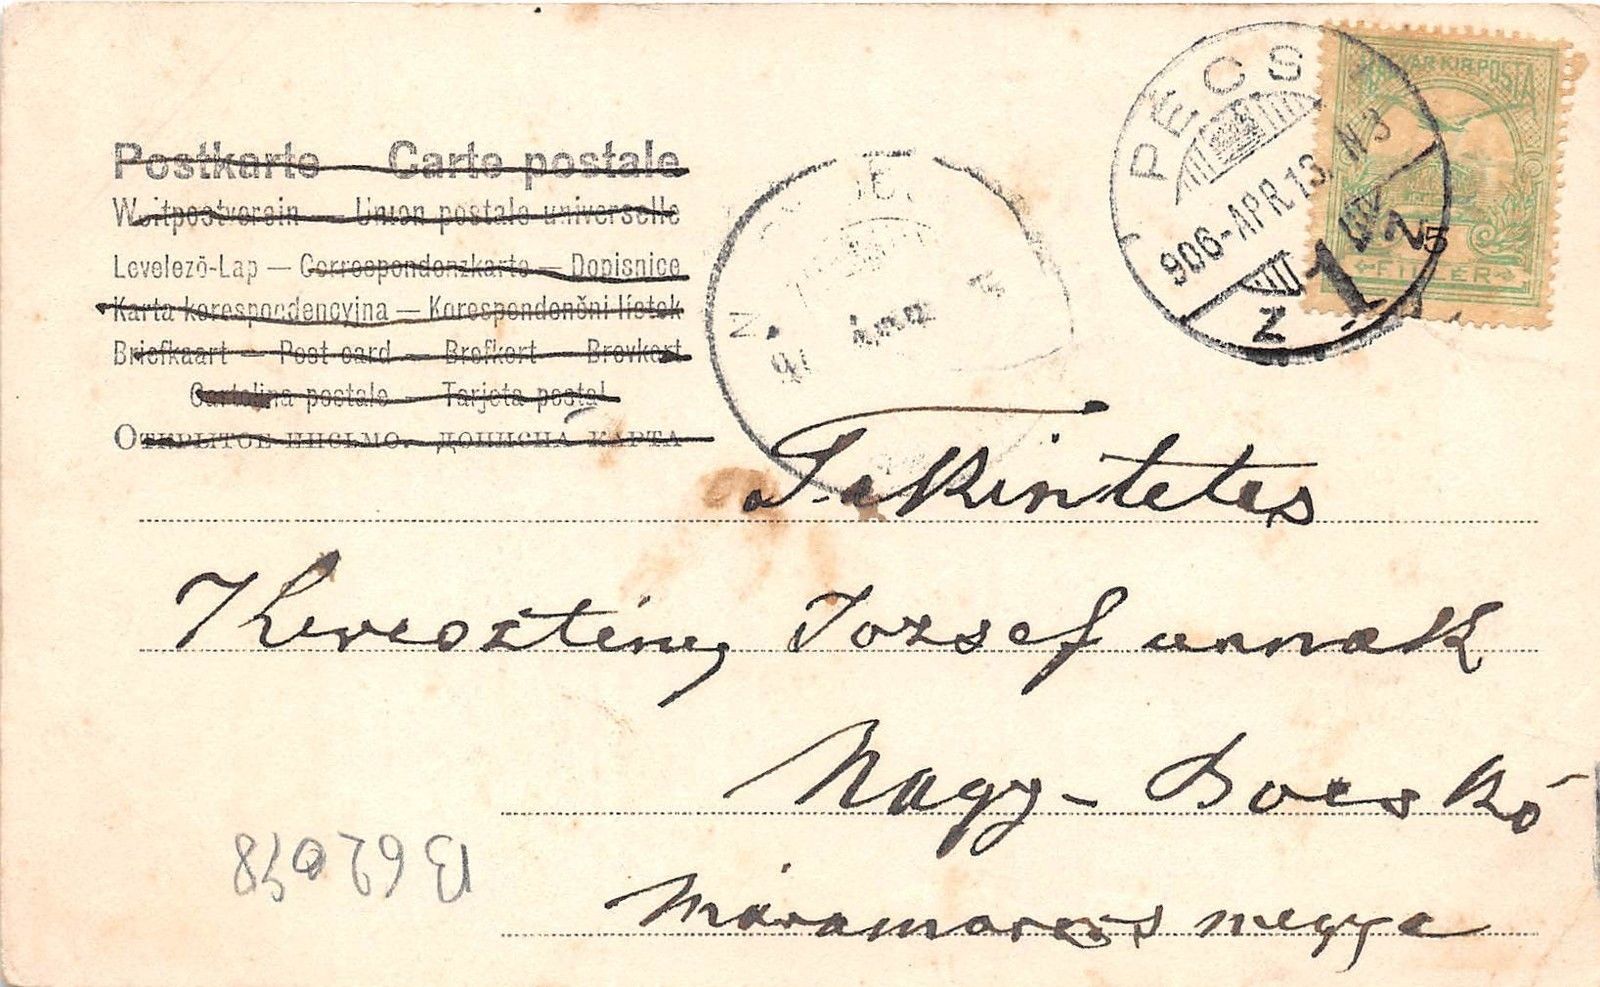 Postkarte — Carte postale
Weltpostverein — Union postale universelle
Levelező-Lap — Correspondenzkarte — Dopisnice
Karta korespondencyjna — Korespondenční lístek
Briefkaart — Post card — Brefkort — Brevkort
Cartolina postale — Tarjeta postal
Открытое письмо. дописна карта
PÉCS
906-APR.13. N3
1
Z
MAGYAR KIR. POSTA
5
FILLÉR
Tekintetes
Keresztény József urnak
Nagy-Bocskó
Máramaros megye
B 62078